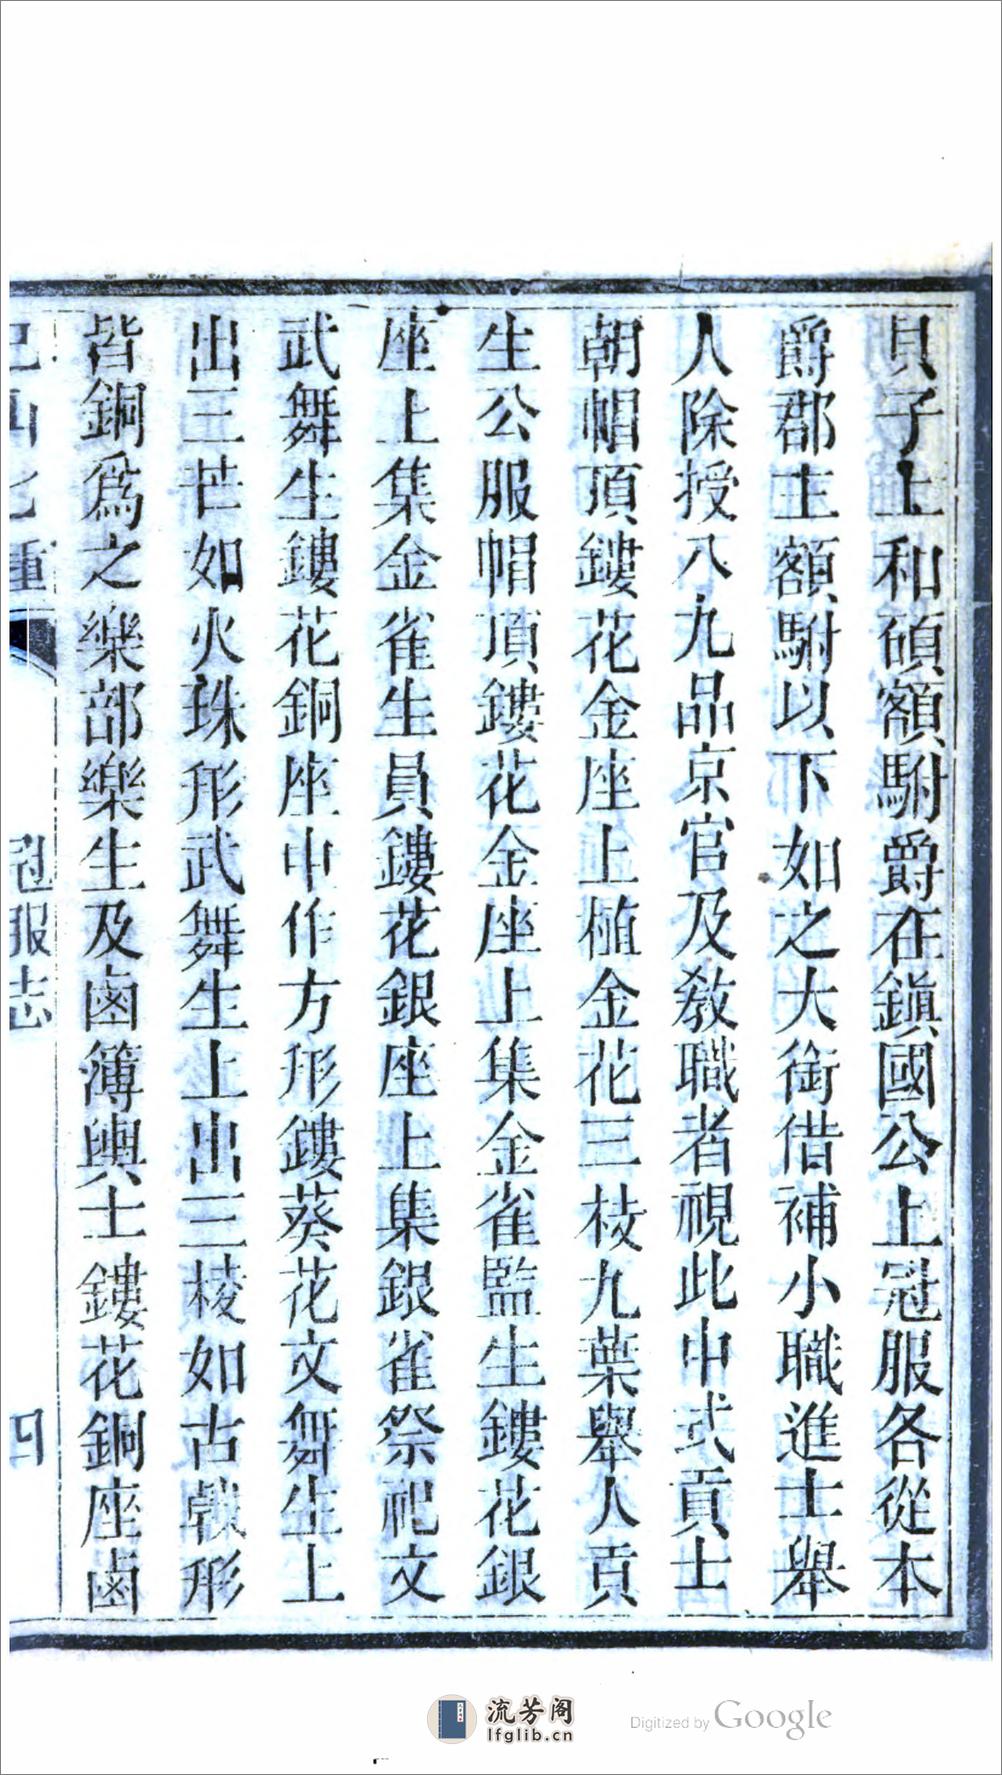 貝子上和碩額駙爵在鎭國公上冠服各從本
爵郡主額駙以下如之大銜借補小職進士舉
人除授八九品京官及敎職者視此中式貢士
朝帽頂鏤花金座上植金花三枝九葉舉人貢
生公服帽頂鏤花金座上集金雀監生鏤花銀
座上集金雀生員鏤花銀座上集銀雀祭祀文
武舞生鏤花銅座中作方形鏤葵花文舞生上
出三芒如火珠形武舞生上出三棱如古戟形
皆銅爲之樂部樂生及鹵簿輿士鏤花銅座鹵
冠服志
四
流芳阁
lfglib.cn
Digitized by Google